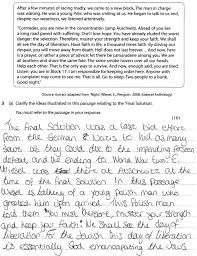 After a few minutes of racing madly, we came to a new block. The man in charge
was waiting. He was a young Pole, who was smiling at us. He began to talk to us and,
despite our weariness, we listened attentively.
"Comrades, you are now in the concentration camp Auschwitz. Ahead of you lies
a long road paved with suffering. Don't lose hope. You have already eluded the worst
danger: the selection. Therefore, muster your strength and keep your faith. We shall
all see the day of liberation. Have faith in life, a thousand times faith. By driving out
despair, you will move away from death. Hell does not last forever... And now, here
is a prayer, or rather a piece of advice: let there be camaraderie among you. We are
all brothers and share the same fate. The same smoke hovers over all our heads.
Help each other. That is the only way to survive. And now, enough said, you are tired.
Listen: you are in Block 17; I am responsible for keeping order here. Anyone with a
complaint may come to see me. That is all. Go to sleep. Two people to a bunk.
Good night."
Source: Extract adapted from 'Night', Wiesel, E., Penguin, 2008: External Anthology
3 (a) Clarify the ideas illustrated in this passage relating to the 'Final Solution'.
You must refer to the passage in your response.
(10)
The Final Solution was a last bid effort
from the German Nazis to kill as many
Jews as they could due to the impending
defeat and the ending to World War two. E.
Wiesel was there at Auschwitz at the
time of the Final Solution. In this passage
Wiesel is talking of a young polish man who
greeted him upon arrival. This Polish man
told them "You must muster your strength
and keep your faith". We shall see the day of
liberation. For the Jewish this day of liberation
is essentially God emancipating the Jews